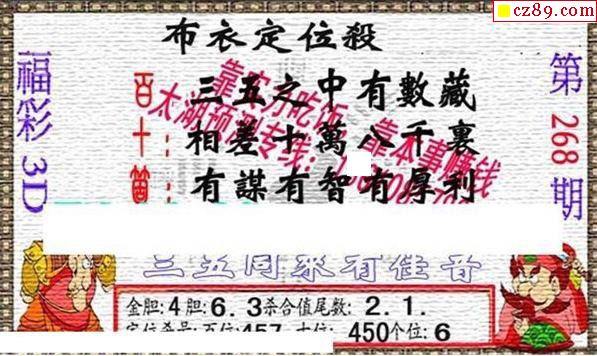 cz89.com
布衣定位殺
福彩3D
第268期
百
十
三五之中有數藏
相差十萬八千裏
有謀有智有厚利
靠实力吃饭 靠本事赚钱
太湖预测专线:
三五同來有佳音
金胆:4胆:6.3杀合值尾数:2.1.
定位杀号:百位457 十位:450个位:6